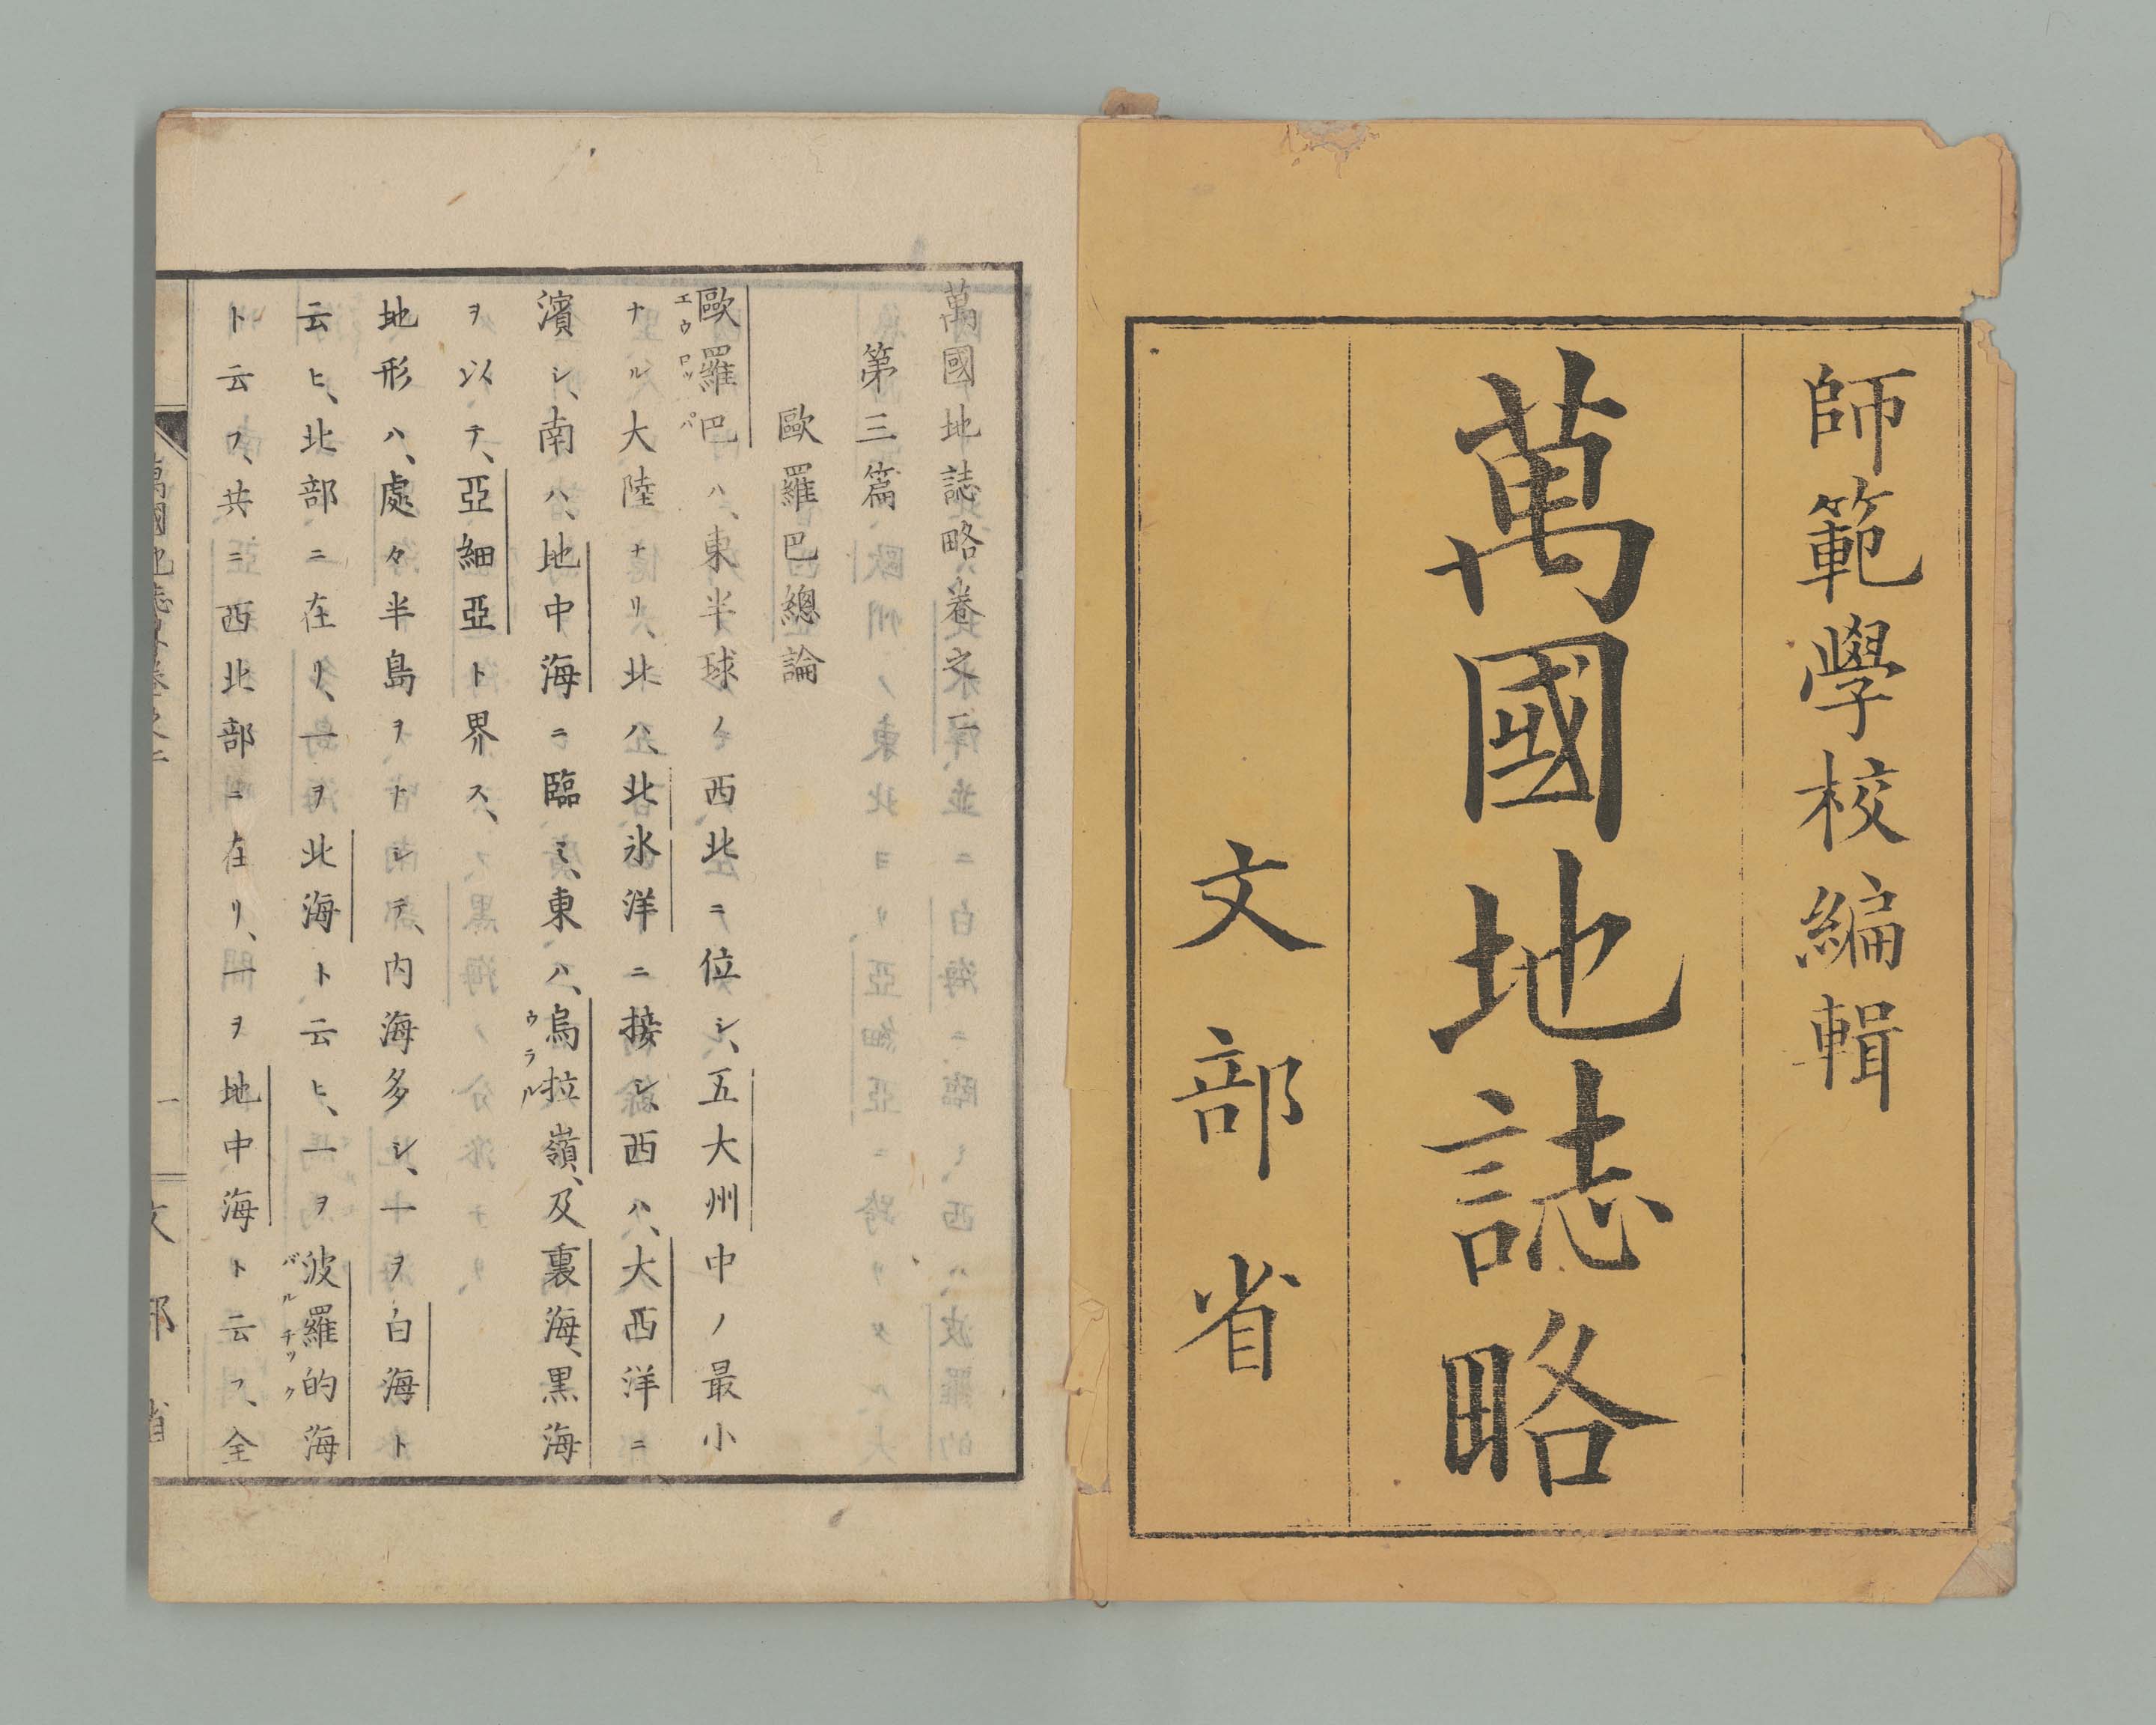 師範學校編輯
萬國地誌略
文部省
萬國地誌略卷之二
第三篇
歐羅巴總論
歐羅巴ハ、東半球ノ西北ニ位シ、五大州中ノ最小
エウロッパ
ナル大陸ナリ、北ハ、北氷洋ニ接シ、西ハ、大西洋ニ
濱シ、南ハ、地中海ニ臨ミ、東ハ、烏拉嶺、及裏海、黒海
ウラル
ヲ以テ、亞細亞ト界ス、
地形ハ、處々半島ヲナシテ、内海多シ、一ヲ白海ト
云ヒ、北部ニ在リ、一ヲ北海ト云ヒ、一ヲ波羅的海
バルチック
ト云フ、共ニ西北部ニ在リ、一ヲ地中海ト云フ、全
萬國地誌略卷之二
一
文部省